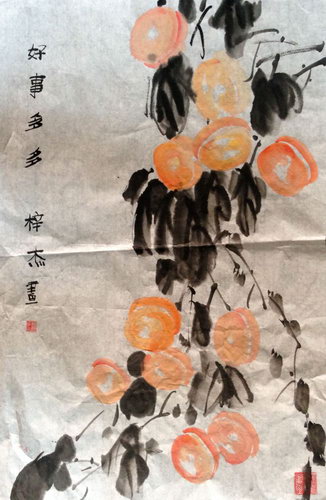 好事多多 梓杰画